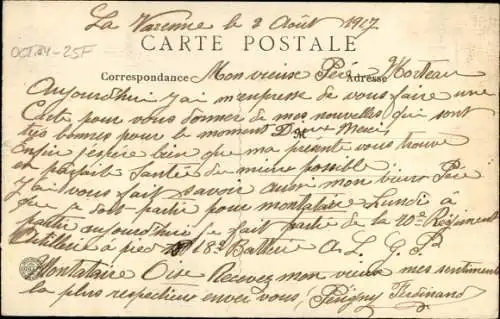 La Varenne le 2 Août 1917
OCT.04-25F
CARTE POSTALE
Correspondance Adresse
Mon vieux Père Morteau
Aujourdhui j'ai m'empresse de vous faire une
Carte pour vous donner de mes nouvelles qui sont
très bonnes pour le moment Dieux Merci
Enfin j'espère bien que ma présente vous trouve
en parfait Santée de mieux possible
J'ai vous fait savoir aussi mon vieux Père
que je doit partir pour montataire Lundi à
partir aujourd'hui je fait partie de la 20e Régiment
Artillerie à pied 18e Batterie A. L. G. P.
Montataire Oise Recevez mon vieux mes sentiment
la plus respectieu envers vous! Périgny Ferdinand